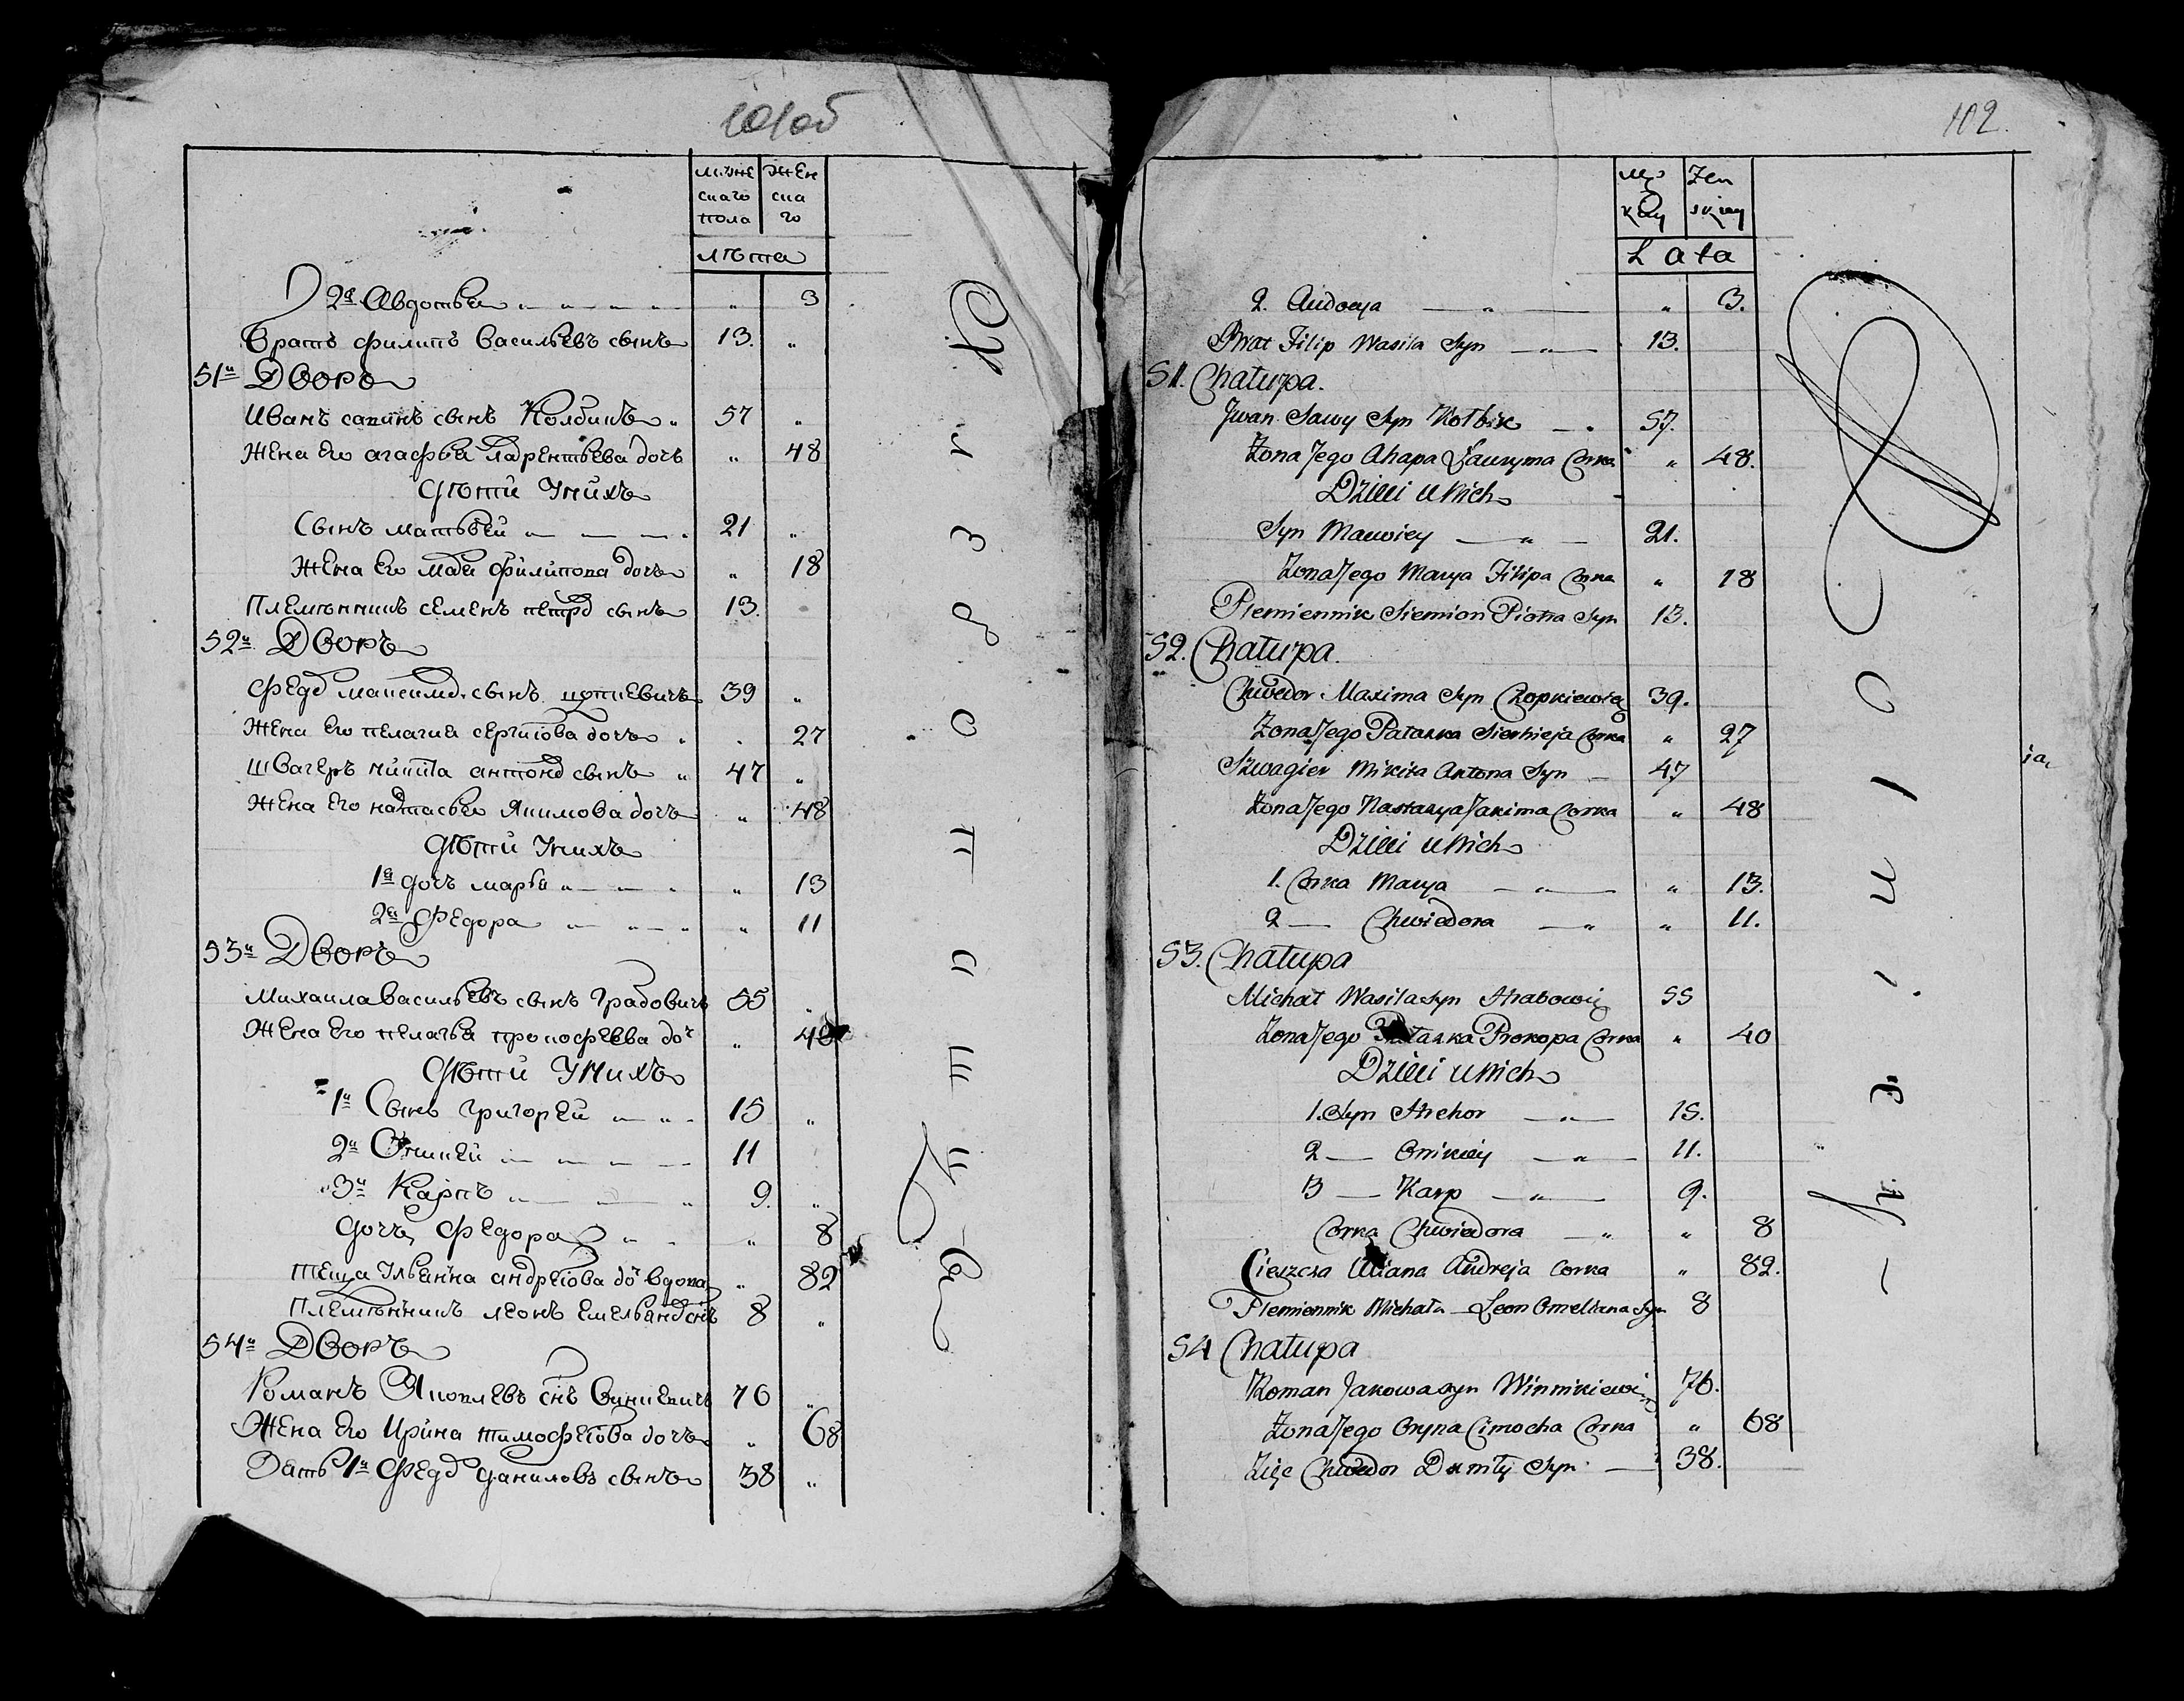 101об
мужескаго пола женскаго
лѣта
2я Авдотья " 3
Братъ Филипъ Васильевъ сынъ 13. "
51й Дворъ
Иванъ савинъ сынъ Колбикъ 57 "
Жена Его агафья лаврентьева дочь " 48
Дѣти Унихъ
Сынъ матвѣй 21 "
Жена Его Филипова дочь " 18
Племянникъ семенъ петро сынъ 13.
52й Дворъ
Федо максимо сынъ 39 "
Жена Его пелагия сергѣева дочь " 27
шваге​ръ никита антоно сынъ 47 "
Жена Его настасья Якимова дочь " 48
Дѣти Унихъ
1я дочь марья " 13
2я Федора " 11
53й Дворъ
Михаила васильевъ сынъ Градовичъ 55 "
Жена Его пелагья прокофьева до " 40
Дѣти Унихъ
1й Сынъ григорей 15 "
2й Оникей 11
3й Карпъ 9. "
Дочь Федора " 8
теща Ульянна андреева до вдова " 82
Племянникъ леонъ Емельяно снъ 8 "
54й Дворъ
Романъ Яковлевъ снъ Виникевичъ 76 "
Жена Его Ирина тимофеева дочь " 68
Зять 1й Федо даниловъ сынъ 38 "
102.
Męzkiey Zenskiey
Lata
2. Audocya " 3.
Brat Filip Wasila Syn 13.
51. Chałupa.
Jwan Sawy Syn Kołbik 57.
Zona Jego Ahapa Ławryna Corka " 48.
Dzieci u Nich
Syn Mawiey 21.
Zona Jego Marya Filipa Corka " 18
Plemiennik Siemion Piotra Syn 13.
52. Chałupa.
Chwedor Maxima Syn Chopkiewicz 39.
Zona Jego Pałaxka Sierhieja Corka " 27
Szwagier Mikita Antona Syn 47
Zona Jego Nastazya Jakima Corka " 48
Dzieci u Nich
1. Corka Marya " 13.
2 — Chwiedora " 11.
53. Chałupa
Michał Wasila Syn Hrabowicz 55
Zona Jego Pałaxka Prokopa Corka " 40
Dzieci u Nich
1. Syn Hrehor 15.
2 — Onikiey 11.
3 — Karp 9.
Corka Chwiedora " 8
Cieszcza Uliana Andreja Corka " 82.
Plemiennik Michała — Leon Omeliana Syn 8
54 Chałupa
Roman Jakowa Syn Winnikiewicz 76.
Zona Jego Oryna Cimocha Corka " 68
Zięc Chwedor Daniły Syn 38.